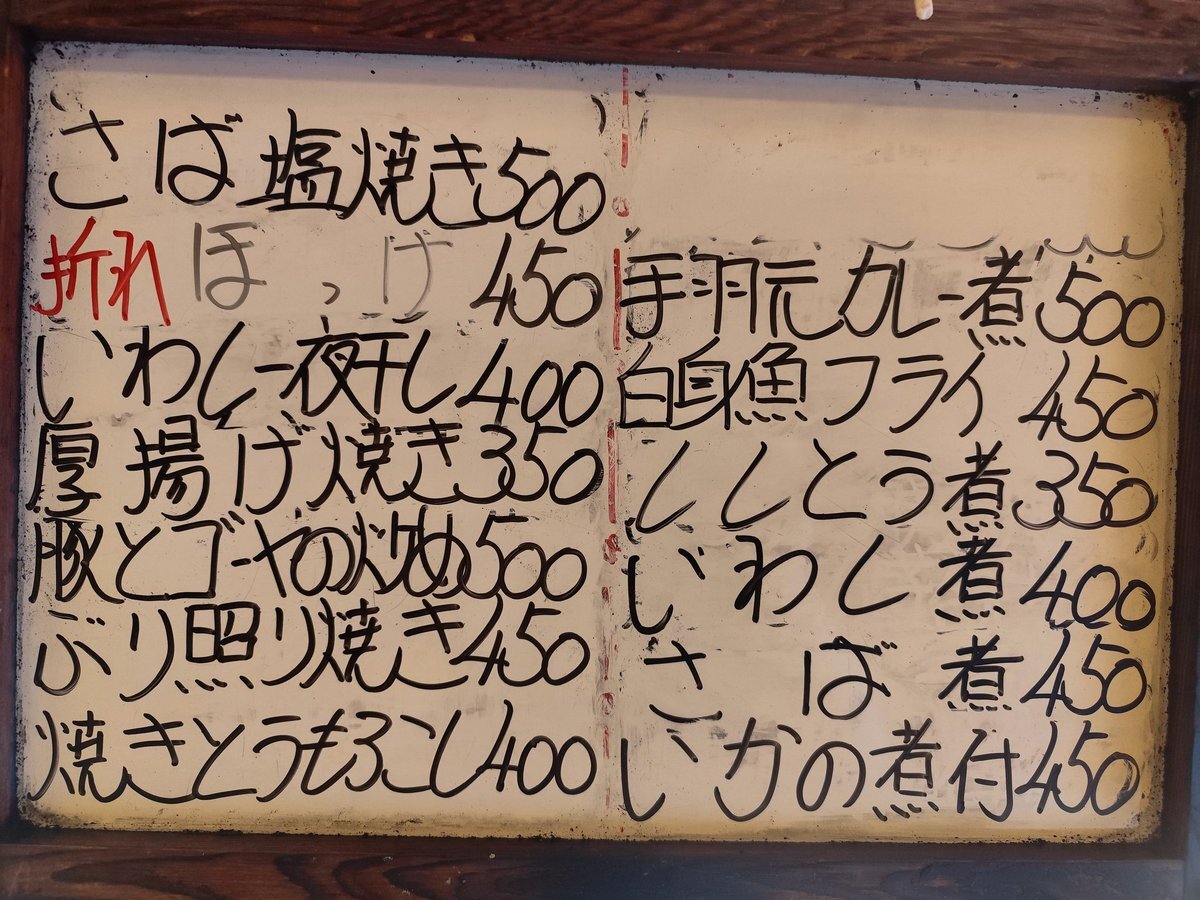 さば塩焼き500
折れほっけ 450
いわし一夜干し400
厚揚げ焼き350
豚とゴーヤの炒め500
ぶり照り焼き450
焼きとうもろこし400
手羽元カレー煮500
白身魚フライ 450
ししとう煮350
いわし煮400
さば煮450
いかの煮付450